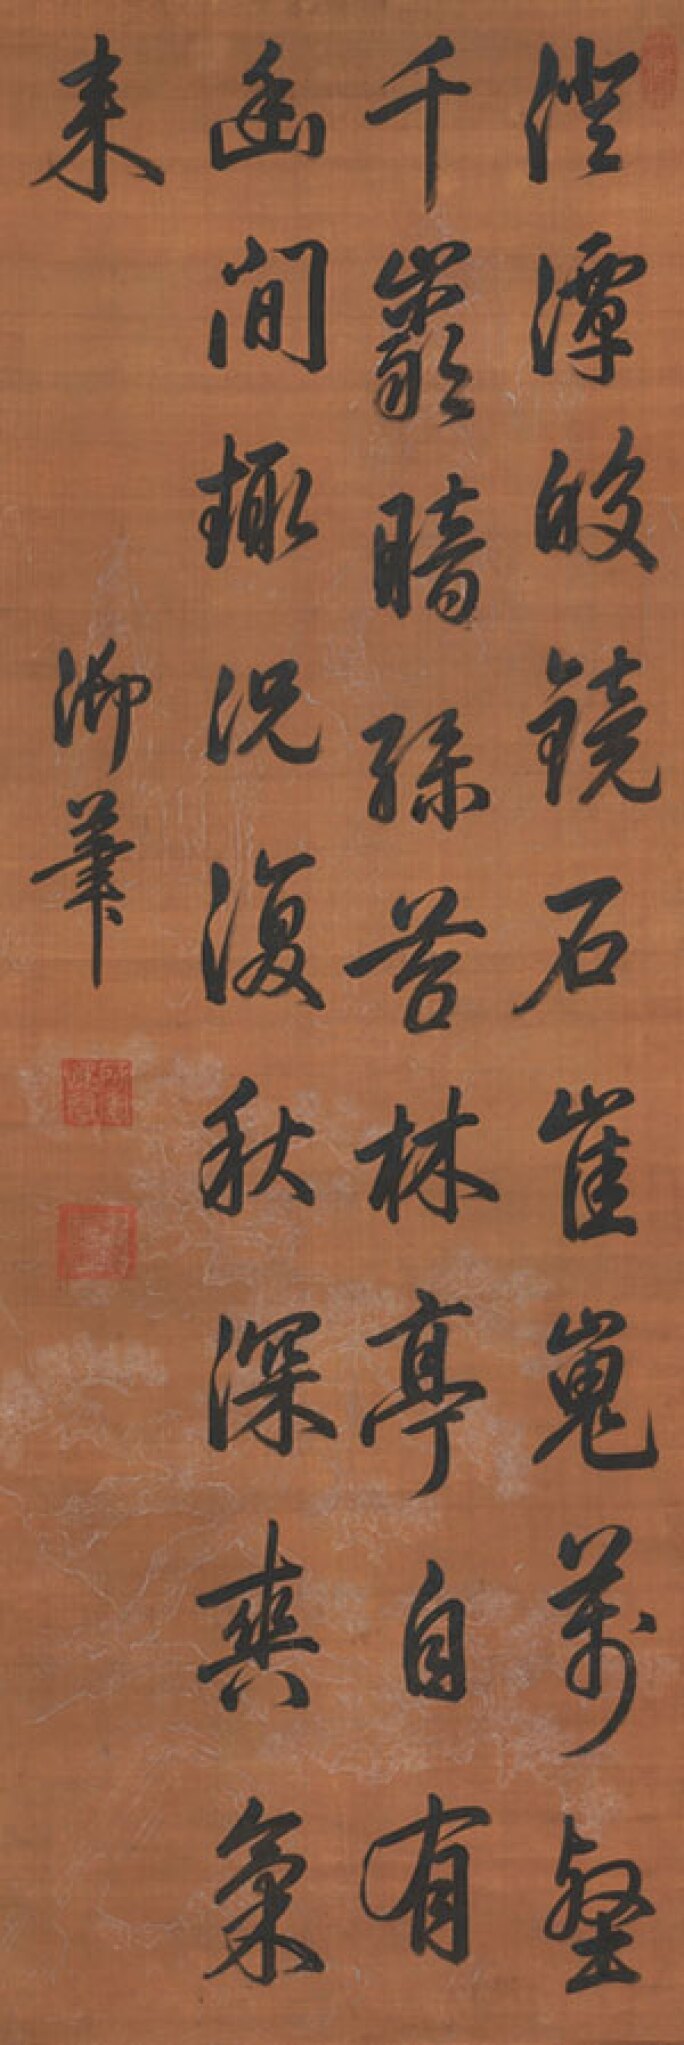 澄潭皎鏡石崔嵬萬壑
千巖暗綠苔林亭自有
幽閒趣況復秋深爽氣
来
御筆